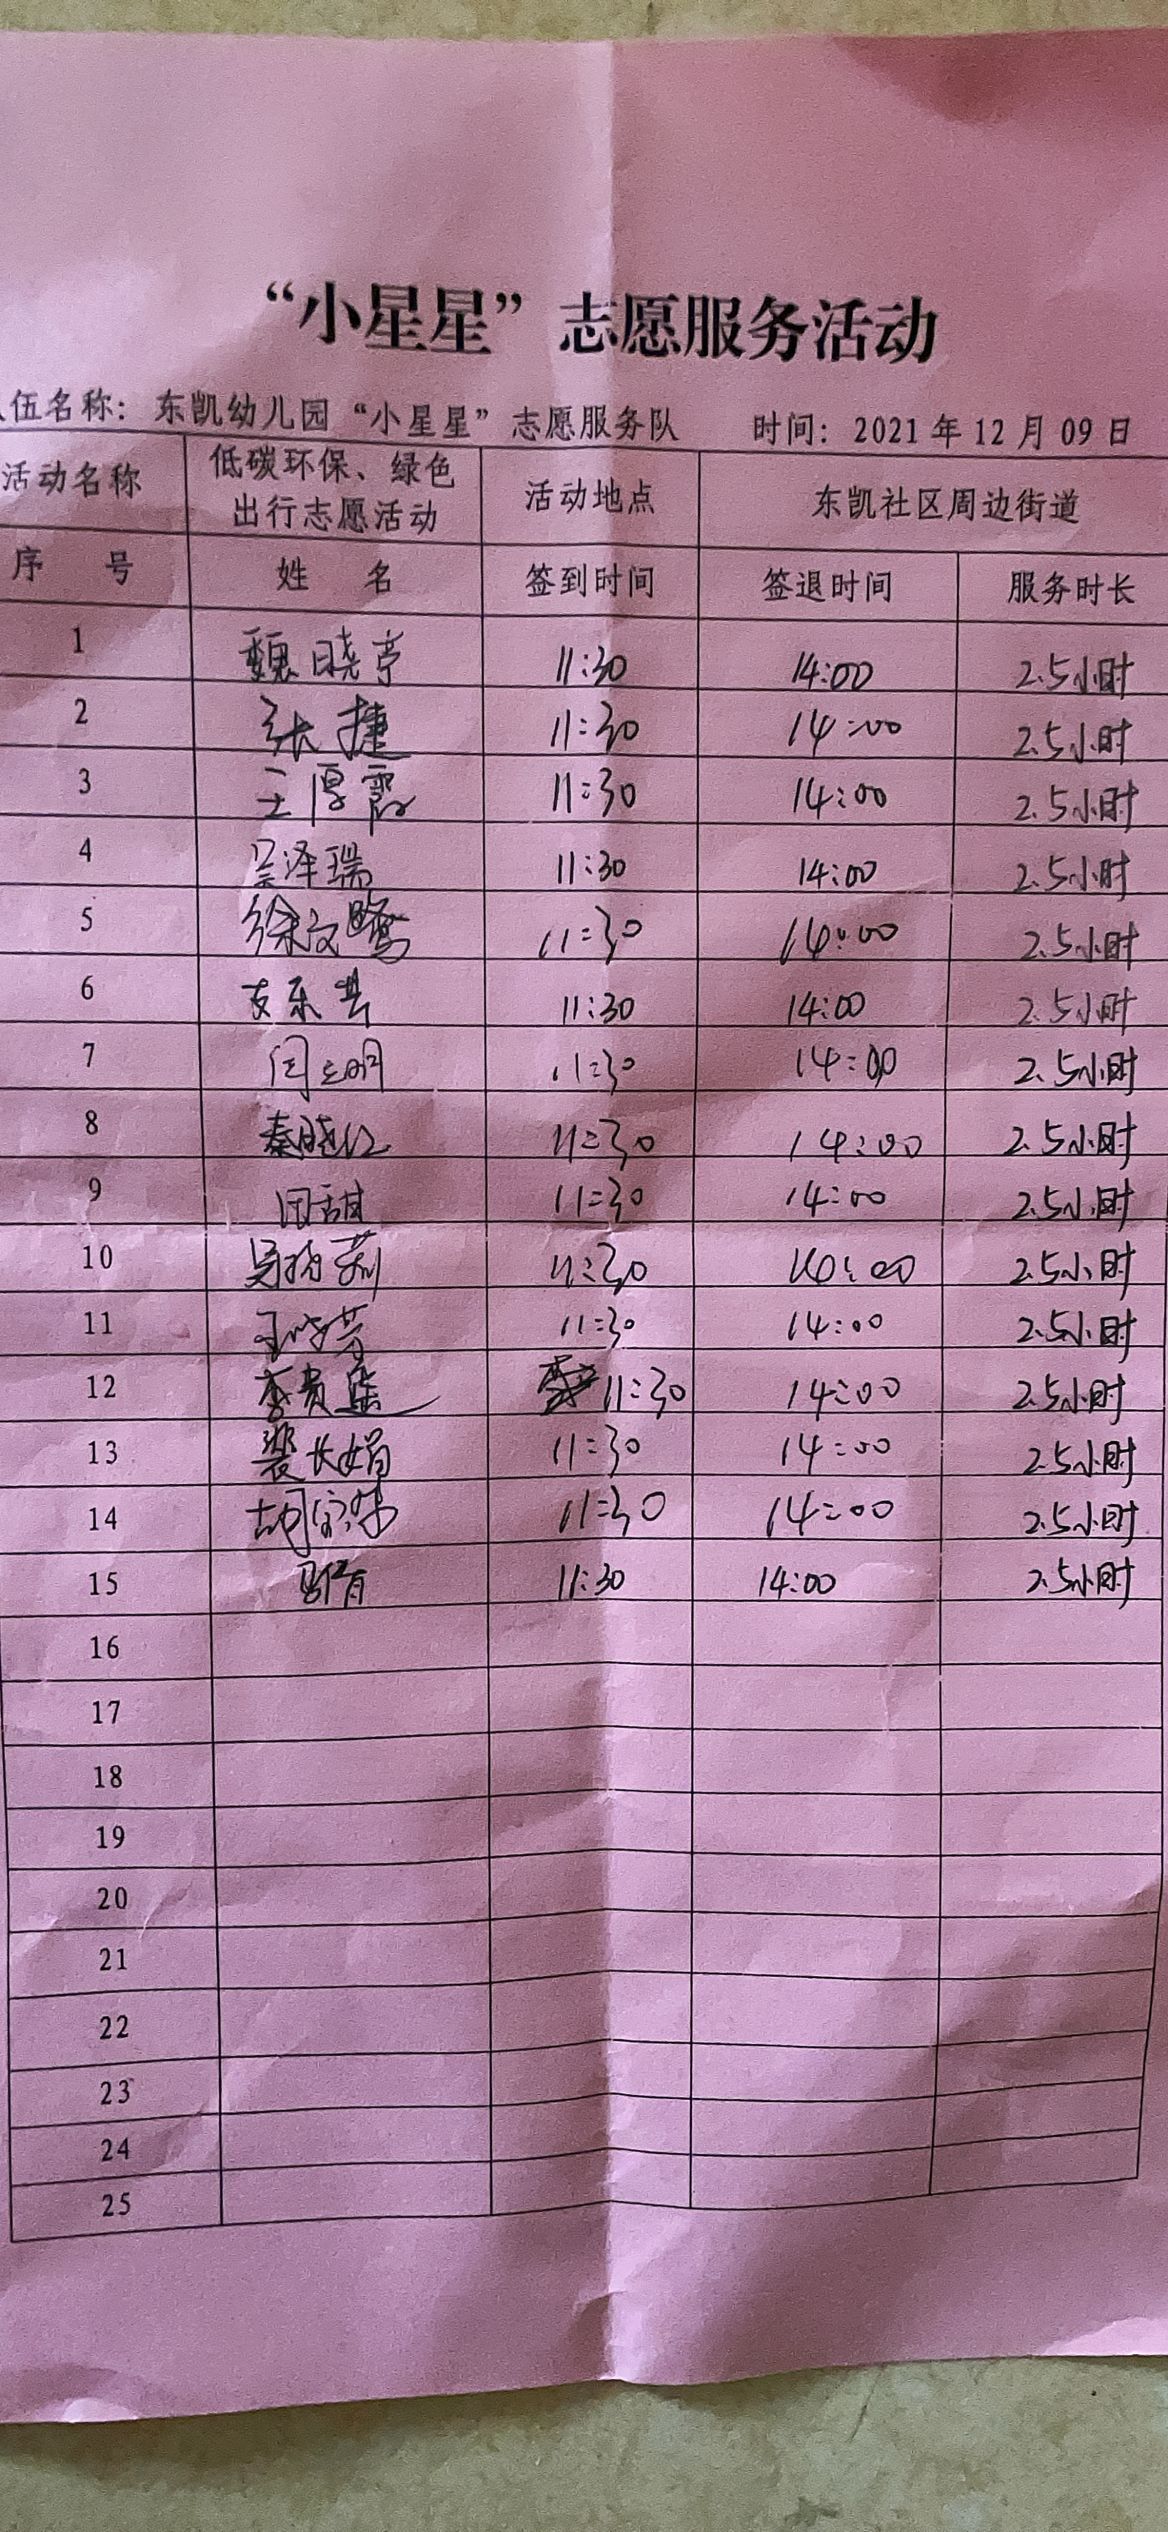 “小星星”志愿服务活动
伍名称：东凯幼儿园“小星星”志愿服务队 时间：2021年12月09日
活动名称 低碳环保、绿色出行志愿活动 活动地点 东凯社区周边街道
序号 姓名 签到时间 签退时间 服务时长
1 魏晓亭 11:30 14:00 2.5小时
2 张捷 11:30 14:00 2.5小时
3 王厚霞 11:30 14:00 2.5小时
4 吴泽瑞 11:30 14:00 2.5小时
5 徐文鹭 11:30 14:00 2.5小时
6 11:30 14:00 2.5小时
7 闫立明 11:30 14:00 2.5小时
8 秦晓红 11:30 14:00 2.5小时
9 田甜 11:30 14:00 2.5小时
10 11:30 14:00 2.5小时
11 王晓芳 11:30 14:00 2.5小时
12 李贵 11:30 14:00 2.5小时
13 裴长娟 11:30 14:00 2.5小时
14 胡 11:30 14:00 2.5小时
15 11:30 14:00 2.5小时
16
17
18
19
20
21
22
23
24
25